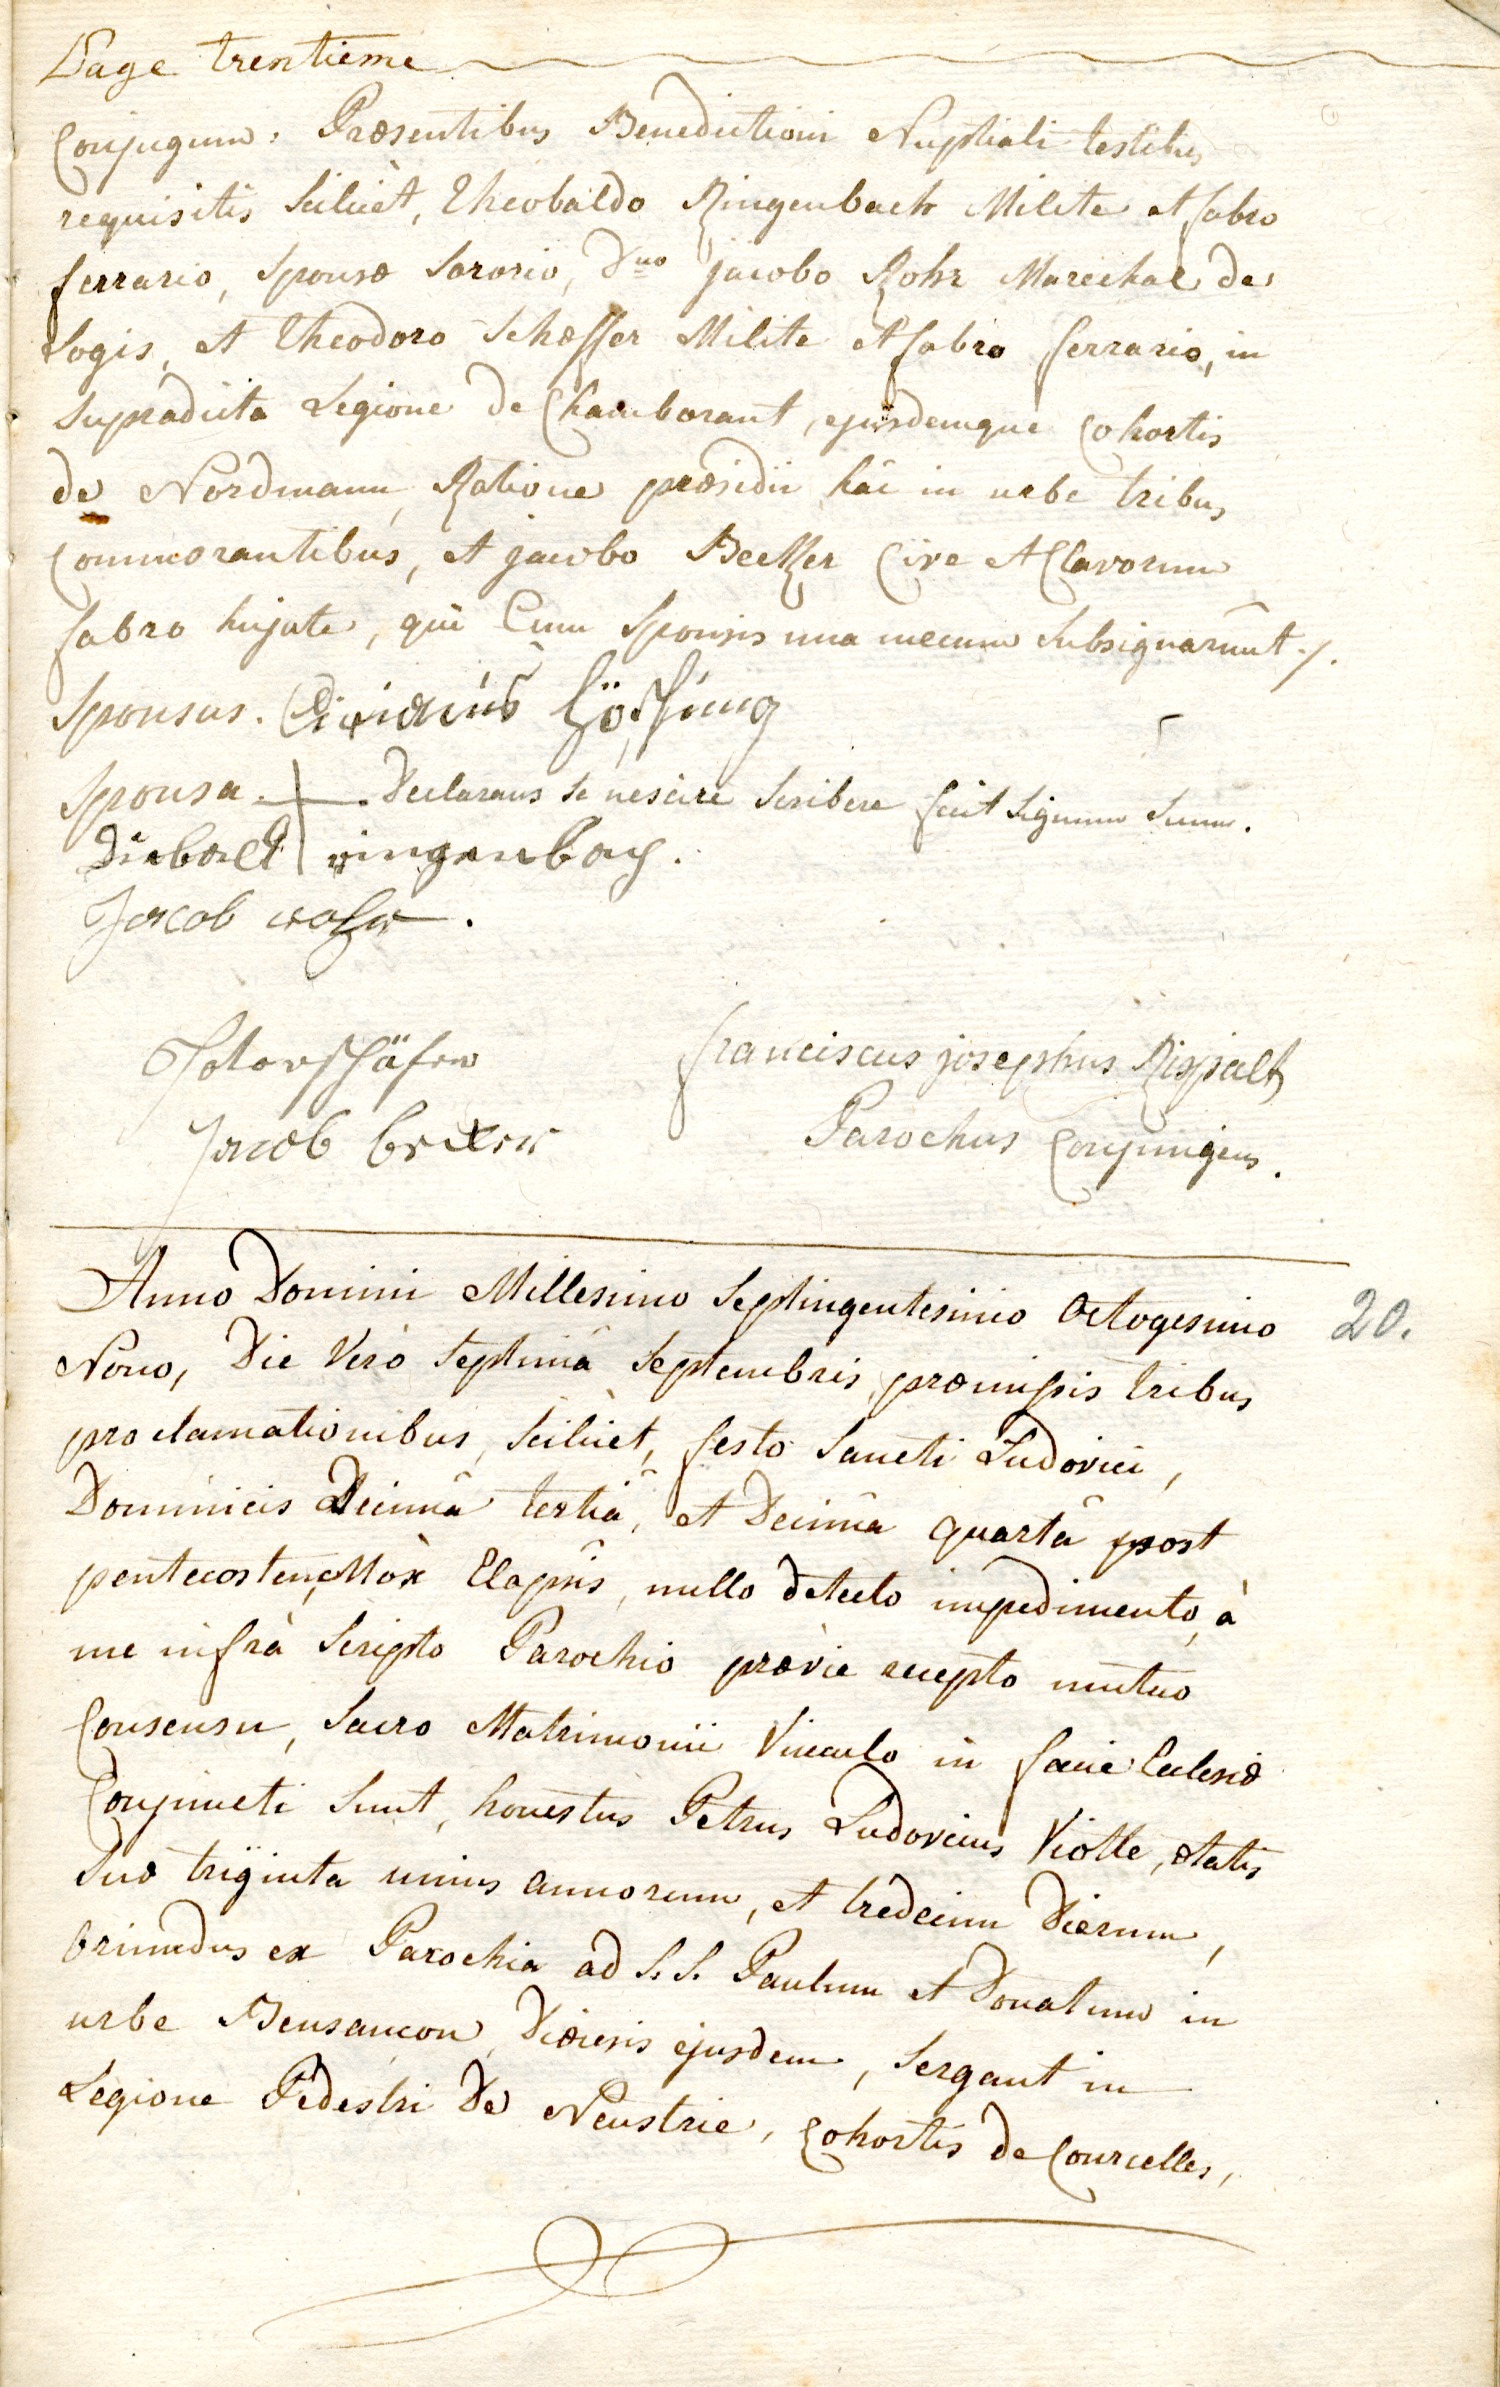 Page trentieme
Conjugum: Præsentibus Benedictioni Nuptiali testibus
requisitis scilicèt, Theobaldo Ringenbach Milite et fabro
ferrario, sponsæ sororio, Dno jacobo Rohr Marechal de
Logis, et Theodoro Schæffer Milite et fabro ferrario, in
supradicta Legione de Chamborant, ejusdemque Cohortis
de Nordmann, Ratione præsidii hâc in urbe tribus
Commorantibus, et jacobo Becker Cive et Clavorum
fabro hujate, qui Cum Sponsis una mecum subsignarûnt ./.
Sponsus.
Sponsa. Declarans se nescire scribere fecit signum suum.
Diebolt ringenbach.
Jacob rohr.
schäfer
franciscus josephus Rispalt
Jacob becker
Parochus Conjungens.
Anno Domini Millesimo septingentesimo octogesimo 20.
Nono, Die Verò septimâ septembris, præmissis tribus
proclamationibus, scilicèt, festo sancti Ludovici,
Dominicis Decimâ tertiâ, et Decimâ quartâ post
pentecosten, Mòx Elapsis, nullo detecto impedimento, à
me infrà scripto Parochio prævie accepto mutuo
Consensu, sacro Matrimonii Vinculo in facie Ecclesiæ
Conjuncti sunt, honestus Petrus Ludovicus Viotte, ætatis
suæ triginta unius annorum, et tredecim Dierum,
oriundus ex Parochia ad S.S. Paulum et Donatum in
urbe Bensancon, Diœcesis ejusdem, sergant in
Legione Pedestri De Neustrie, Cohortis de Courcelles,